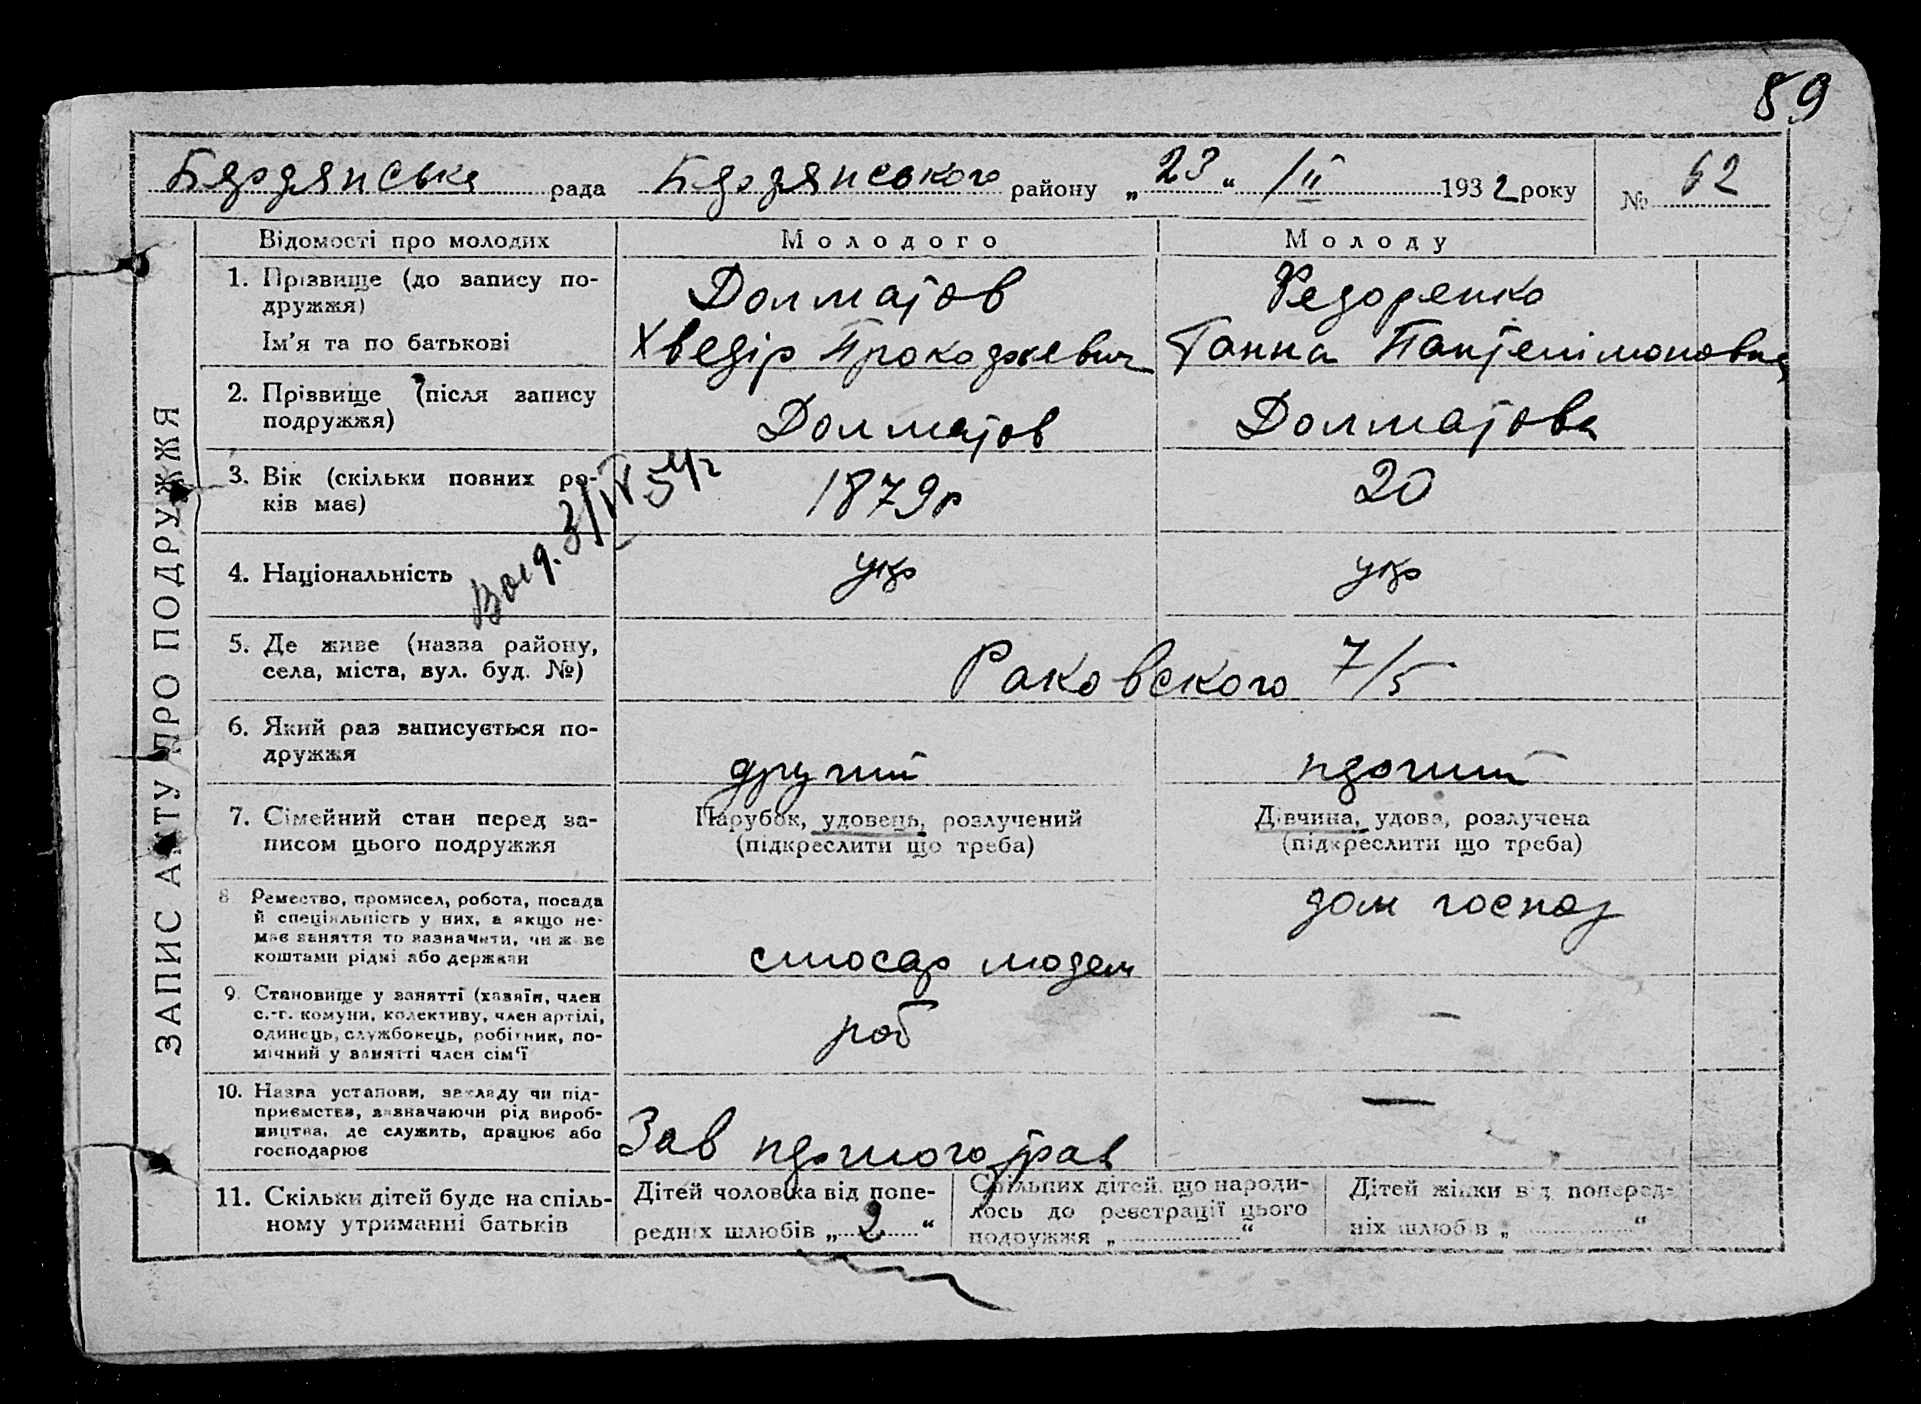 89
Бердянська рада Бердянського району „ 23 “ /II 1932 року № 62
ЗАПИС АКТУ ПРО ПОДРУЖЖЯ
Відомості про молодих
Молодого
Молоду
1. Прізвище (до запису по-
дружжя)
Долматов
Федоренко
Ім'я та по батькові
Хведір Прокофієвич
Ганна Пантелімоновна
2. Прізвище (після запису
подружжя)
Долматов
Долматова
3. Вік (скільки повних ро-
ків має)
1879р
20
4. Національність
укр
укр
3/IV 54г
5. Де живе (назва району,
села, міста, вул. буд. №)
Раковского 7/5
6. Який раз записується по-
дружжя
другий
перший
7. Сімейний стан перед за-
писом цього подружжя
Парубок, удовець, розлучений
(підкреслити що треба)
Дівчина, удова, розлучена
(підкреслити що треба)
8 Ремество, промисел, робота, посада
й спеціяльність у них, а якщо не-
має заняття то зазначити, чи живе
коштами рідні або держави
слюсар
дом господ
9. Становище у занятті (хазяїн, член
с.-г. комуни, колективу, член артілі,
одинець, службовець, робітник, по-
мічний у занятті член сім'ї
роб
—
10. Назва установи, закладу чи під-
приємства, зазначаючи рід вироб-
ництва, де служить, працює або
господарює
Зав
—
11. Скільки дітей буде на спіль-
ному утриманні батьків
Дітей чоловіка від попе-
редніх шлюбів „ 2 “
Спільних дітей, що народи-
лось до реєстрації цього
подружжя „ “
Дітей жінки від поперед-
ніх шлюбів „ “